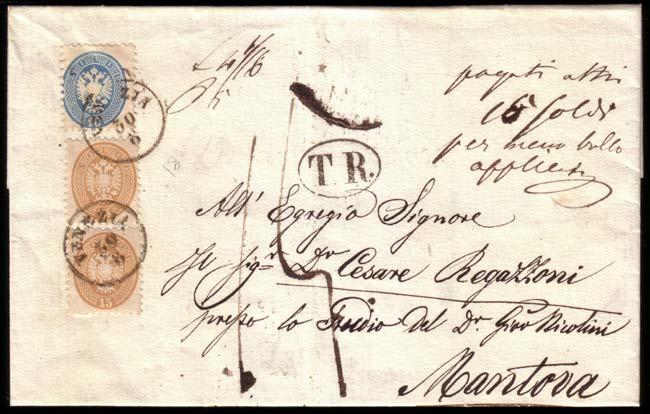 SOLDI
pagati altri
15 Soldi
per meno bollo
T.R.
VENEZIA
All' Egregio Signore
Il Sigr Dr Cesare Regazzoni
presso lo Studio del Dr Giov Nicolini
Mantova
VENEZIA
15